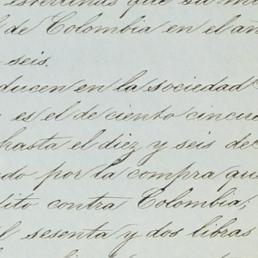 que su
de Colombia en el añ
seis.
ducen en la sociedad
es el de ciento cincu
hasta el diez y seis de
do por la compra qu
dito contra Colombia;
il sesenta y dos libras